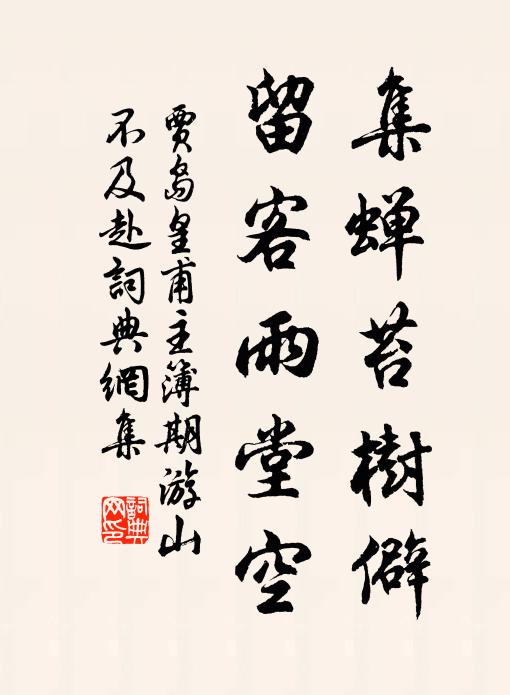 集蝉苔樹僻
留客雨堂空
賈島皇甫主簿期游山
不及赴詞典網集
詞典
网印